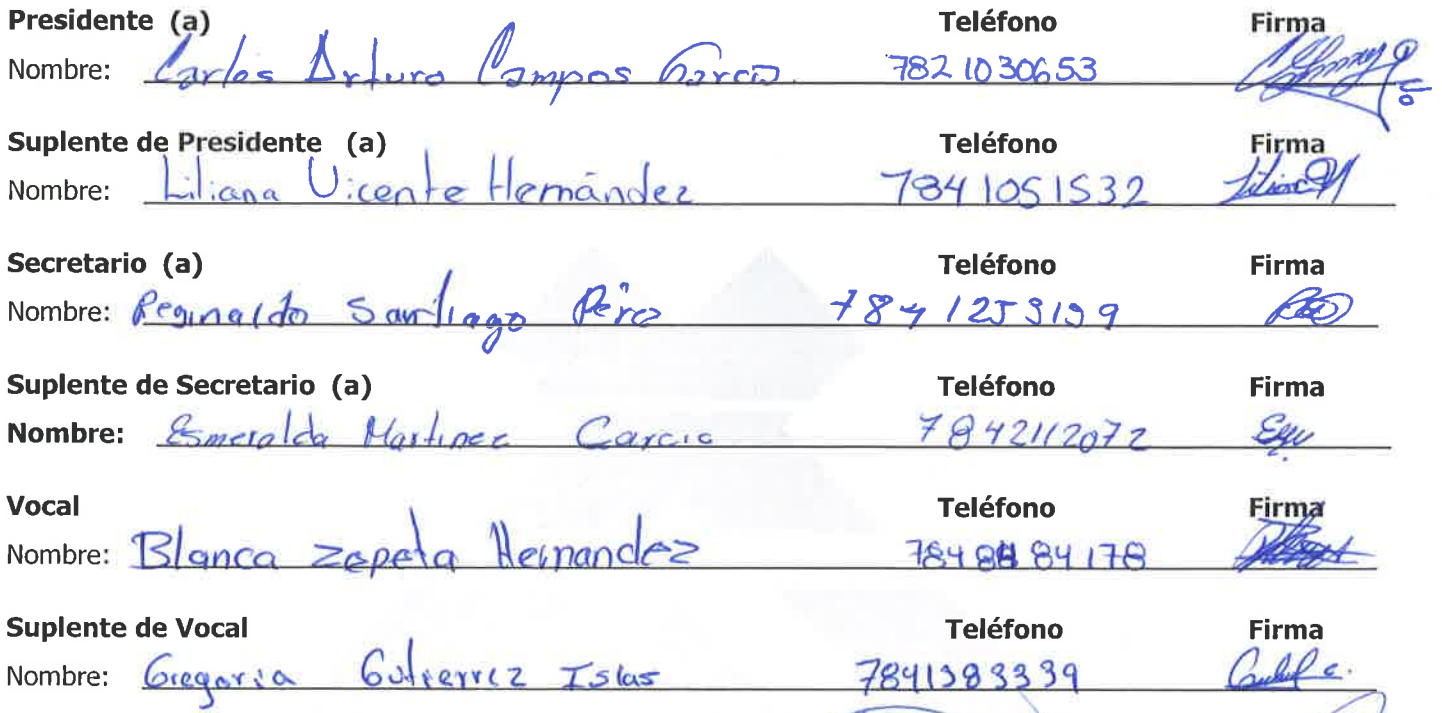 Presidente (a) Teléfono Firma
Nombre: Carlos Arturo Campos García 7821030653
Suplente de Presidente (a) Teléfono Firma
Nombre: Liliana Vicente Hernández 7841051532
Secretario (a) Teléfono Firma
Nombre: Reginaldo Santiago
Suplente de Secretario (a) Teléfono Firma
Nombre: Esmeralda Martinez Garcia 7842112072
Vocal Teléfono Firma
Nombre: Blanca Zepeta Hernandez
Suplente de Vocal Teléfono Firma
Nombre: Gregoria Gutierrez Islas 7841383339